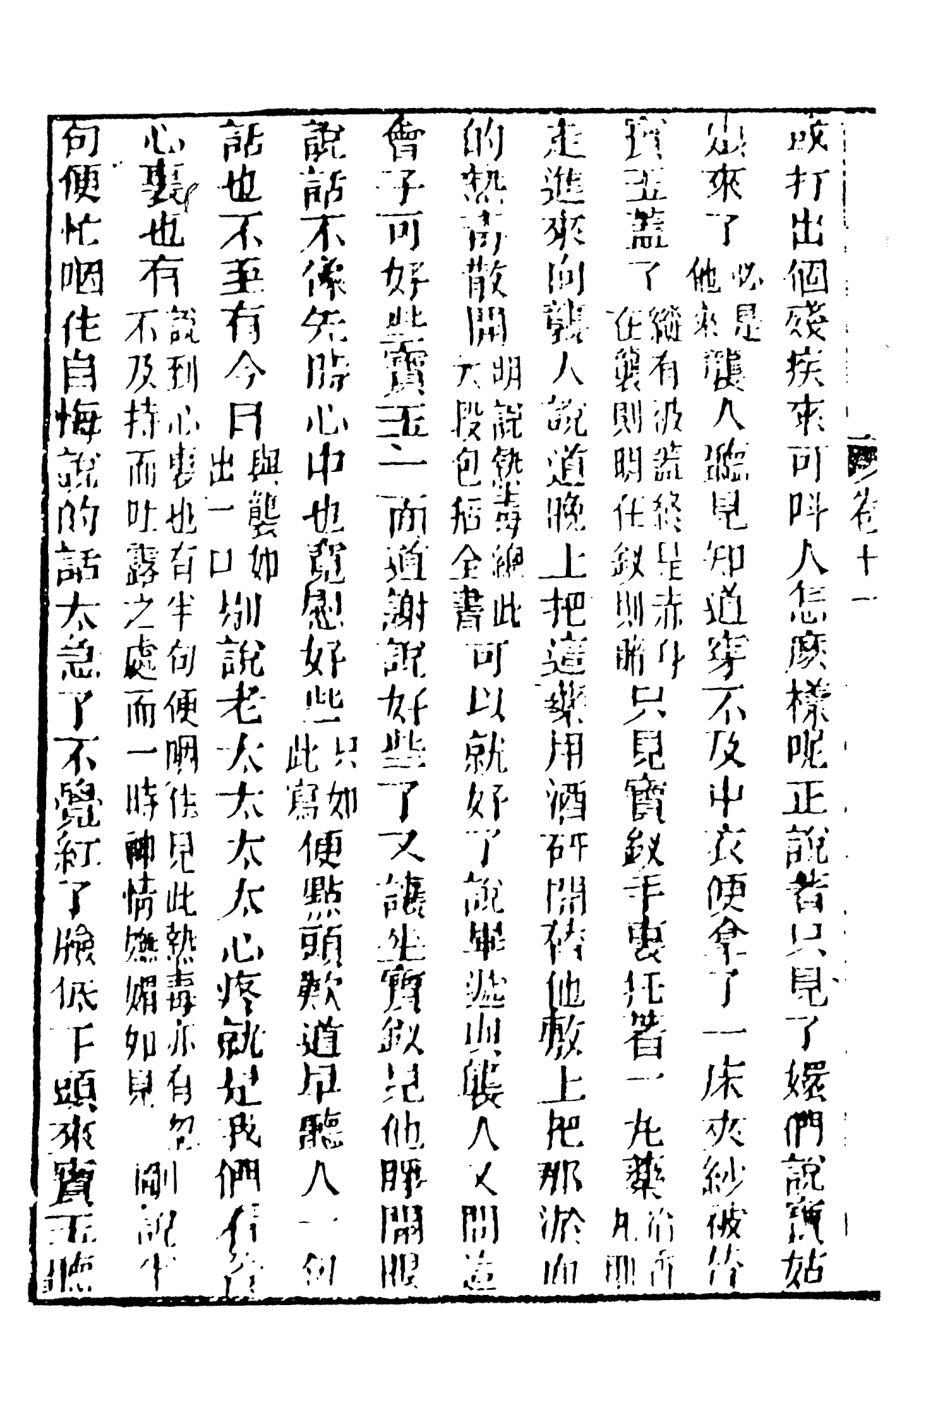 卷十一
或打出個殘疾來可呌人怎麽樣呢正說着只見了嬛們說寳姑
娘來了必是他來襲人聽見知道穿不及中衣便拿了一床夾紗被替
寳玉蓋了縱有被蓋終是赤身在襲則明在釵則暗只見寳釵手裏托着一丸藥
走進來向襲人說道晚上把這藥用酒研開替他敷上把那淤血
的熱毒散開明說熱毒總此大段包括全書可以就好了說畢遞與襲人又問這
會子可好些寳玉一面道謝說好些了又讓坐寳釵見他睜開眼
說話不像先時心中也寛慰好些只如此寫便點頭歎道早聽人一句
話也不至有今日與襲如出一口別說老太太太太心疼就是我們看着
心裏也有說到心裏也有半句便咽住見此熱毒亦有忽不及持而吐露之處而一時神情嫵媚如見剛說半
句便忙咽住自悔說的話太急了不覺紅了臉低下頭來寳玉聽